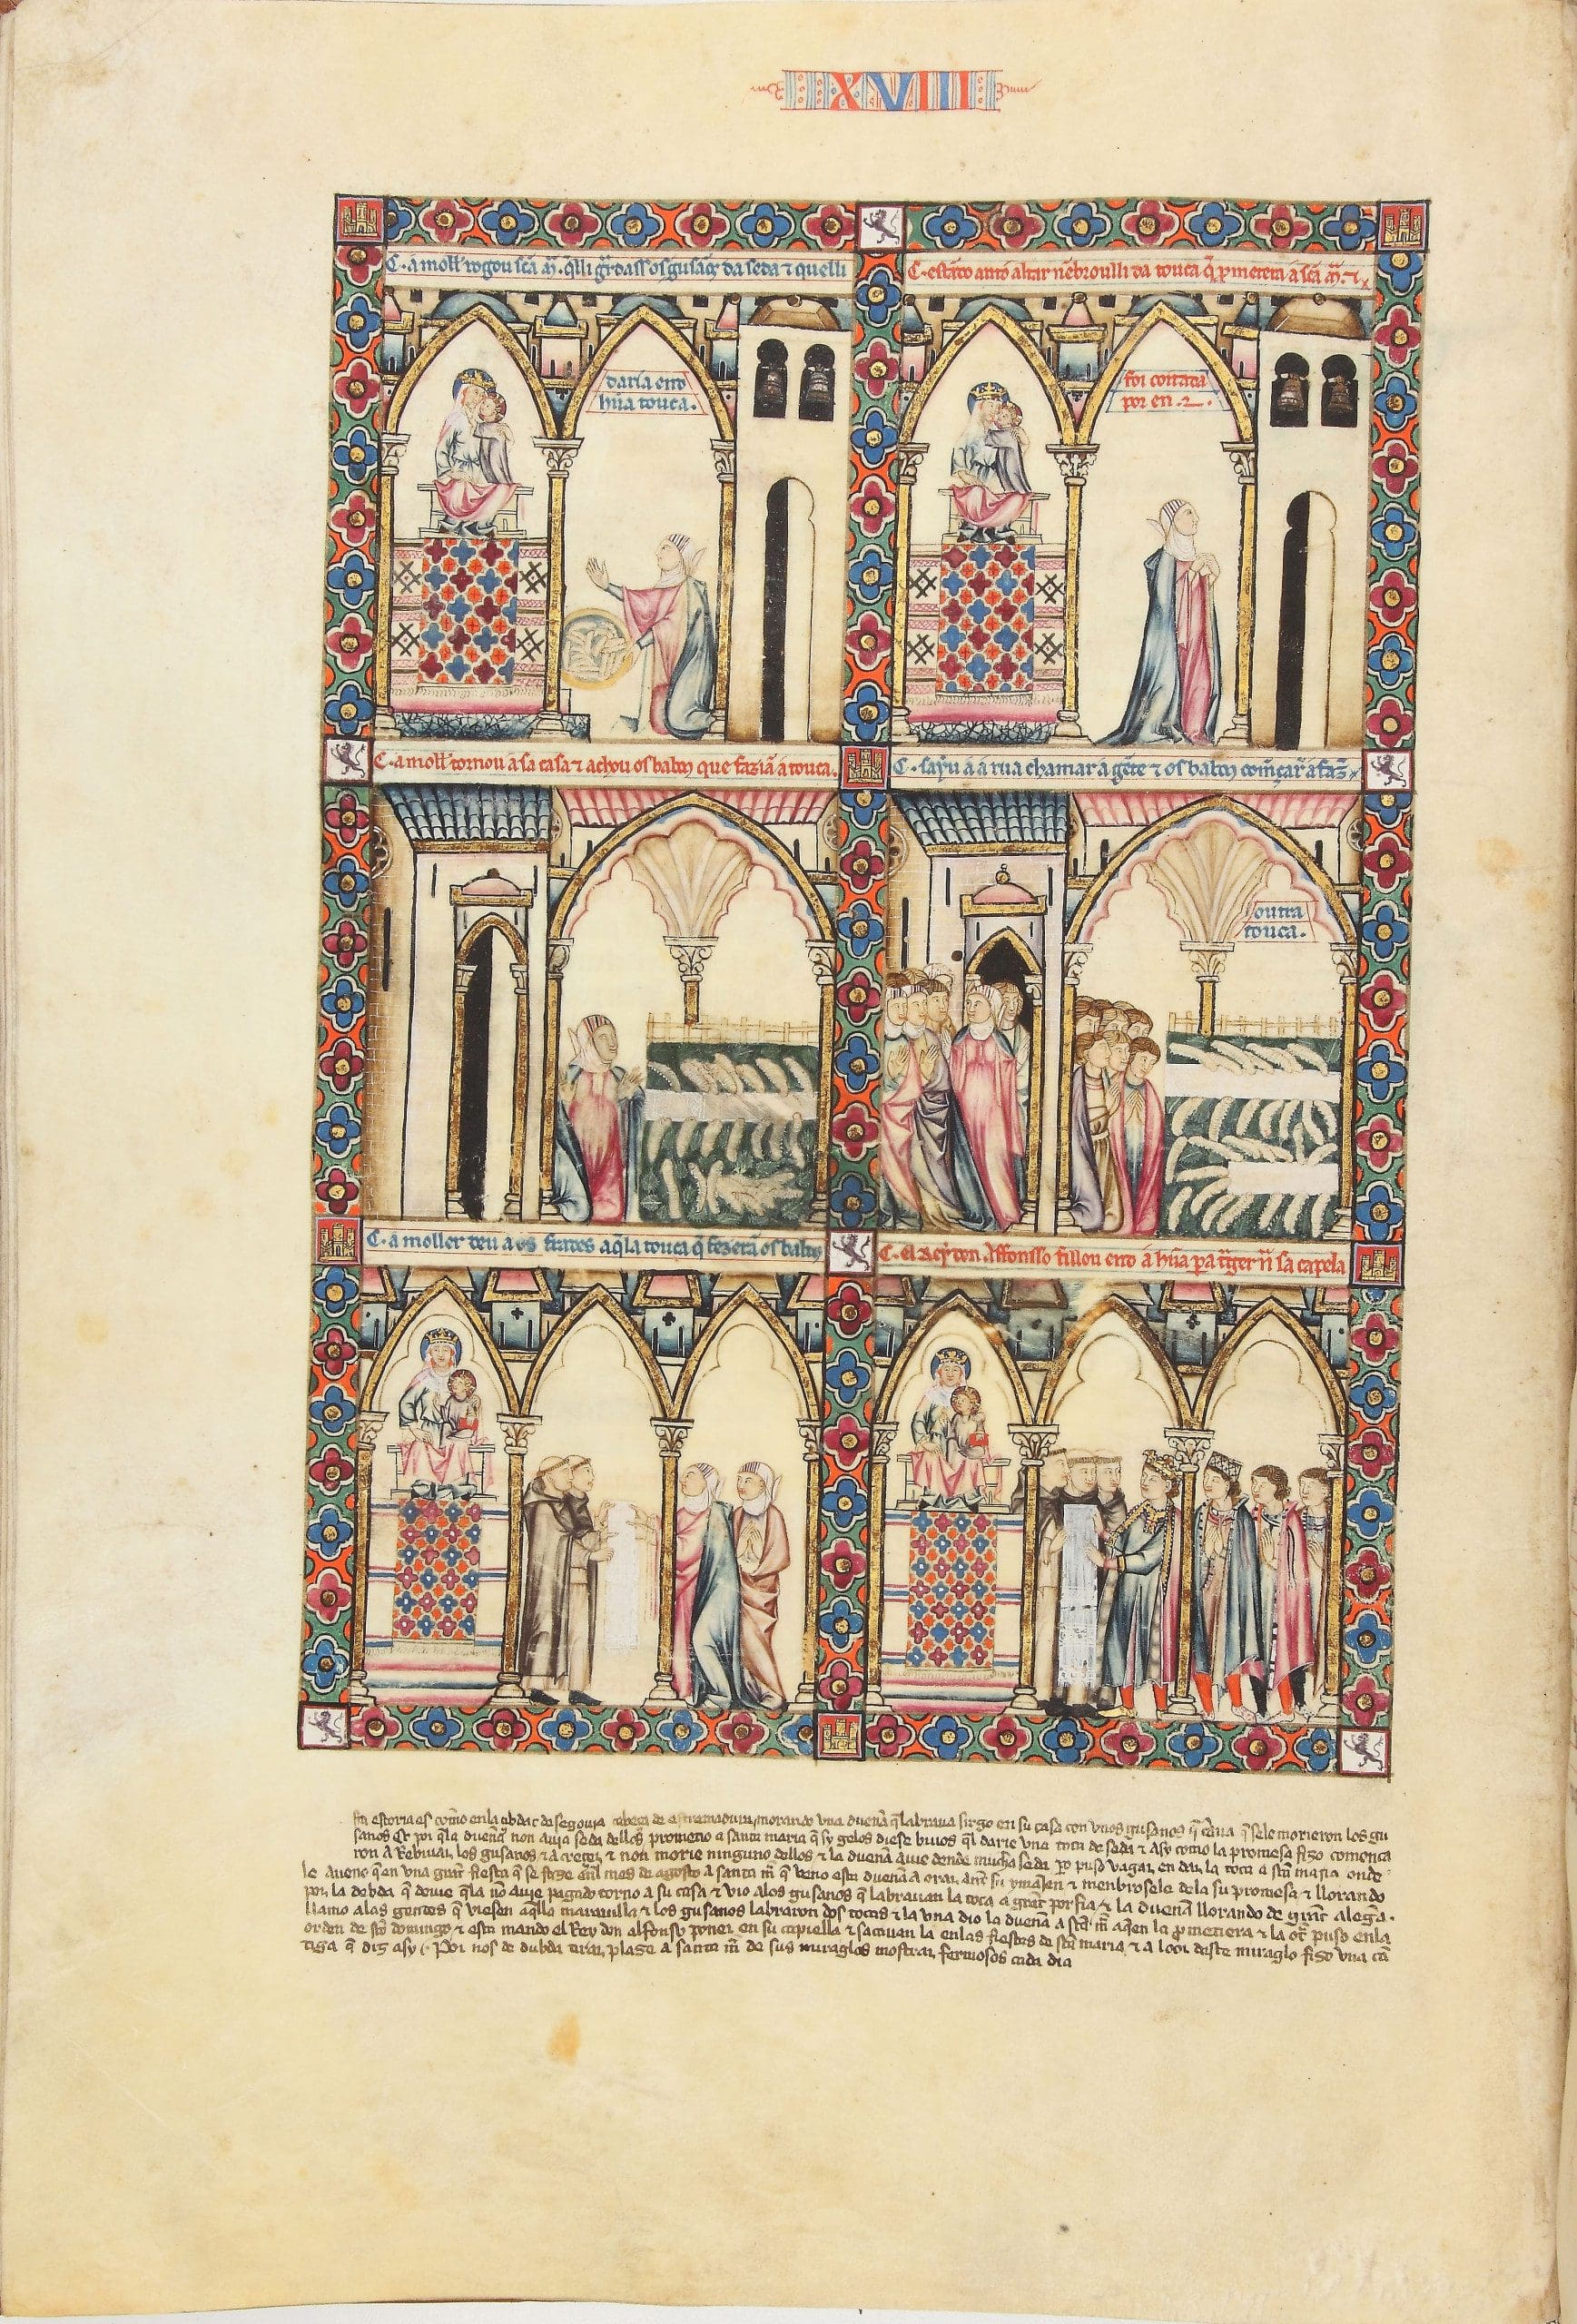 XVIII
C. a moll'r rogou scã m̃. q̃lli gr̃dass os gusãos da seda ⁊ quelli
daria ẽno
hũa touca.
C. estãdo ante o altar nẽbroulli da touca q̃ p̃metera a scã m̃. ⁊
foi coitada
por en.
C. a moll'r tornou a sa casa ⁊ achou os babous que faziã a touca.
C. sayu a a rua chamar a gẽte ⁊ os babous com̃çar̃ a faz̃
outra
touca.
C. a moller deu a os frades aq̃la touca q̃ fezerã os babous
C. el Rey don Affonsso fillou ẽno a hũa pa tr̃ger ñ sa capela
esta estoria es como en la çibdat de segouia cabeça de estremadura, morando una dueña q̃ labraua sirgo en su casa con unos gusanos q̃ cria q̃ sele morieron los gu
sanos Et por q̃ la dueña non auja seda dellos prometio a santa maria q̃ sy gelos diese biuos q̃l darie una toca de seda ⁊ asy como la promesa fizo comença
ron a Rebiuir, los gusanos ⁊ a creçer, ⁊ non morie ninguno dellos ⁊ la dueña auie dende mucha seda po puso vagar, en dar, la toca a sta maria onde
le aueno q̃ en una grãt fiesta q̃ se faze en el mes de agosto a santa m̃ q̃ veno esta dueña a orar, ant su ymajen ⁊ menbrosele dela su promesa ⁊ llorando
por, la debda q̃ deuie q̃la nõ auie pagado torno a su casa ⁊ vio alos gusanos q̃ labrauan la toca a grãt porfia ⁊ la dueña llorando de grãt alegã.
llamo alas gentes q̃ viesen aq̃lla marauilla ⁊ los gusanos labraron dos tocas ⁊ la una dio la dueña a sta m̃ aq̃en la p̃metiera ⁊ la otr̃ puso enla
orden de sto domingo ⁊ esta mando el Rey don alfonso poner, en su capiella ⁊ sacauan la enlas fiestas de sta maria, ⁊ a loor deste miraglo fizo una cã
tiga q̃ diz asy Por nos de dubda tirar, plaze a santa m̃ de sus miraglos mostrar, fermosos cada dia